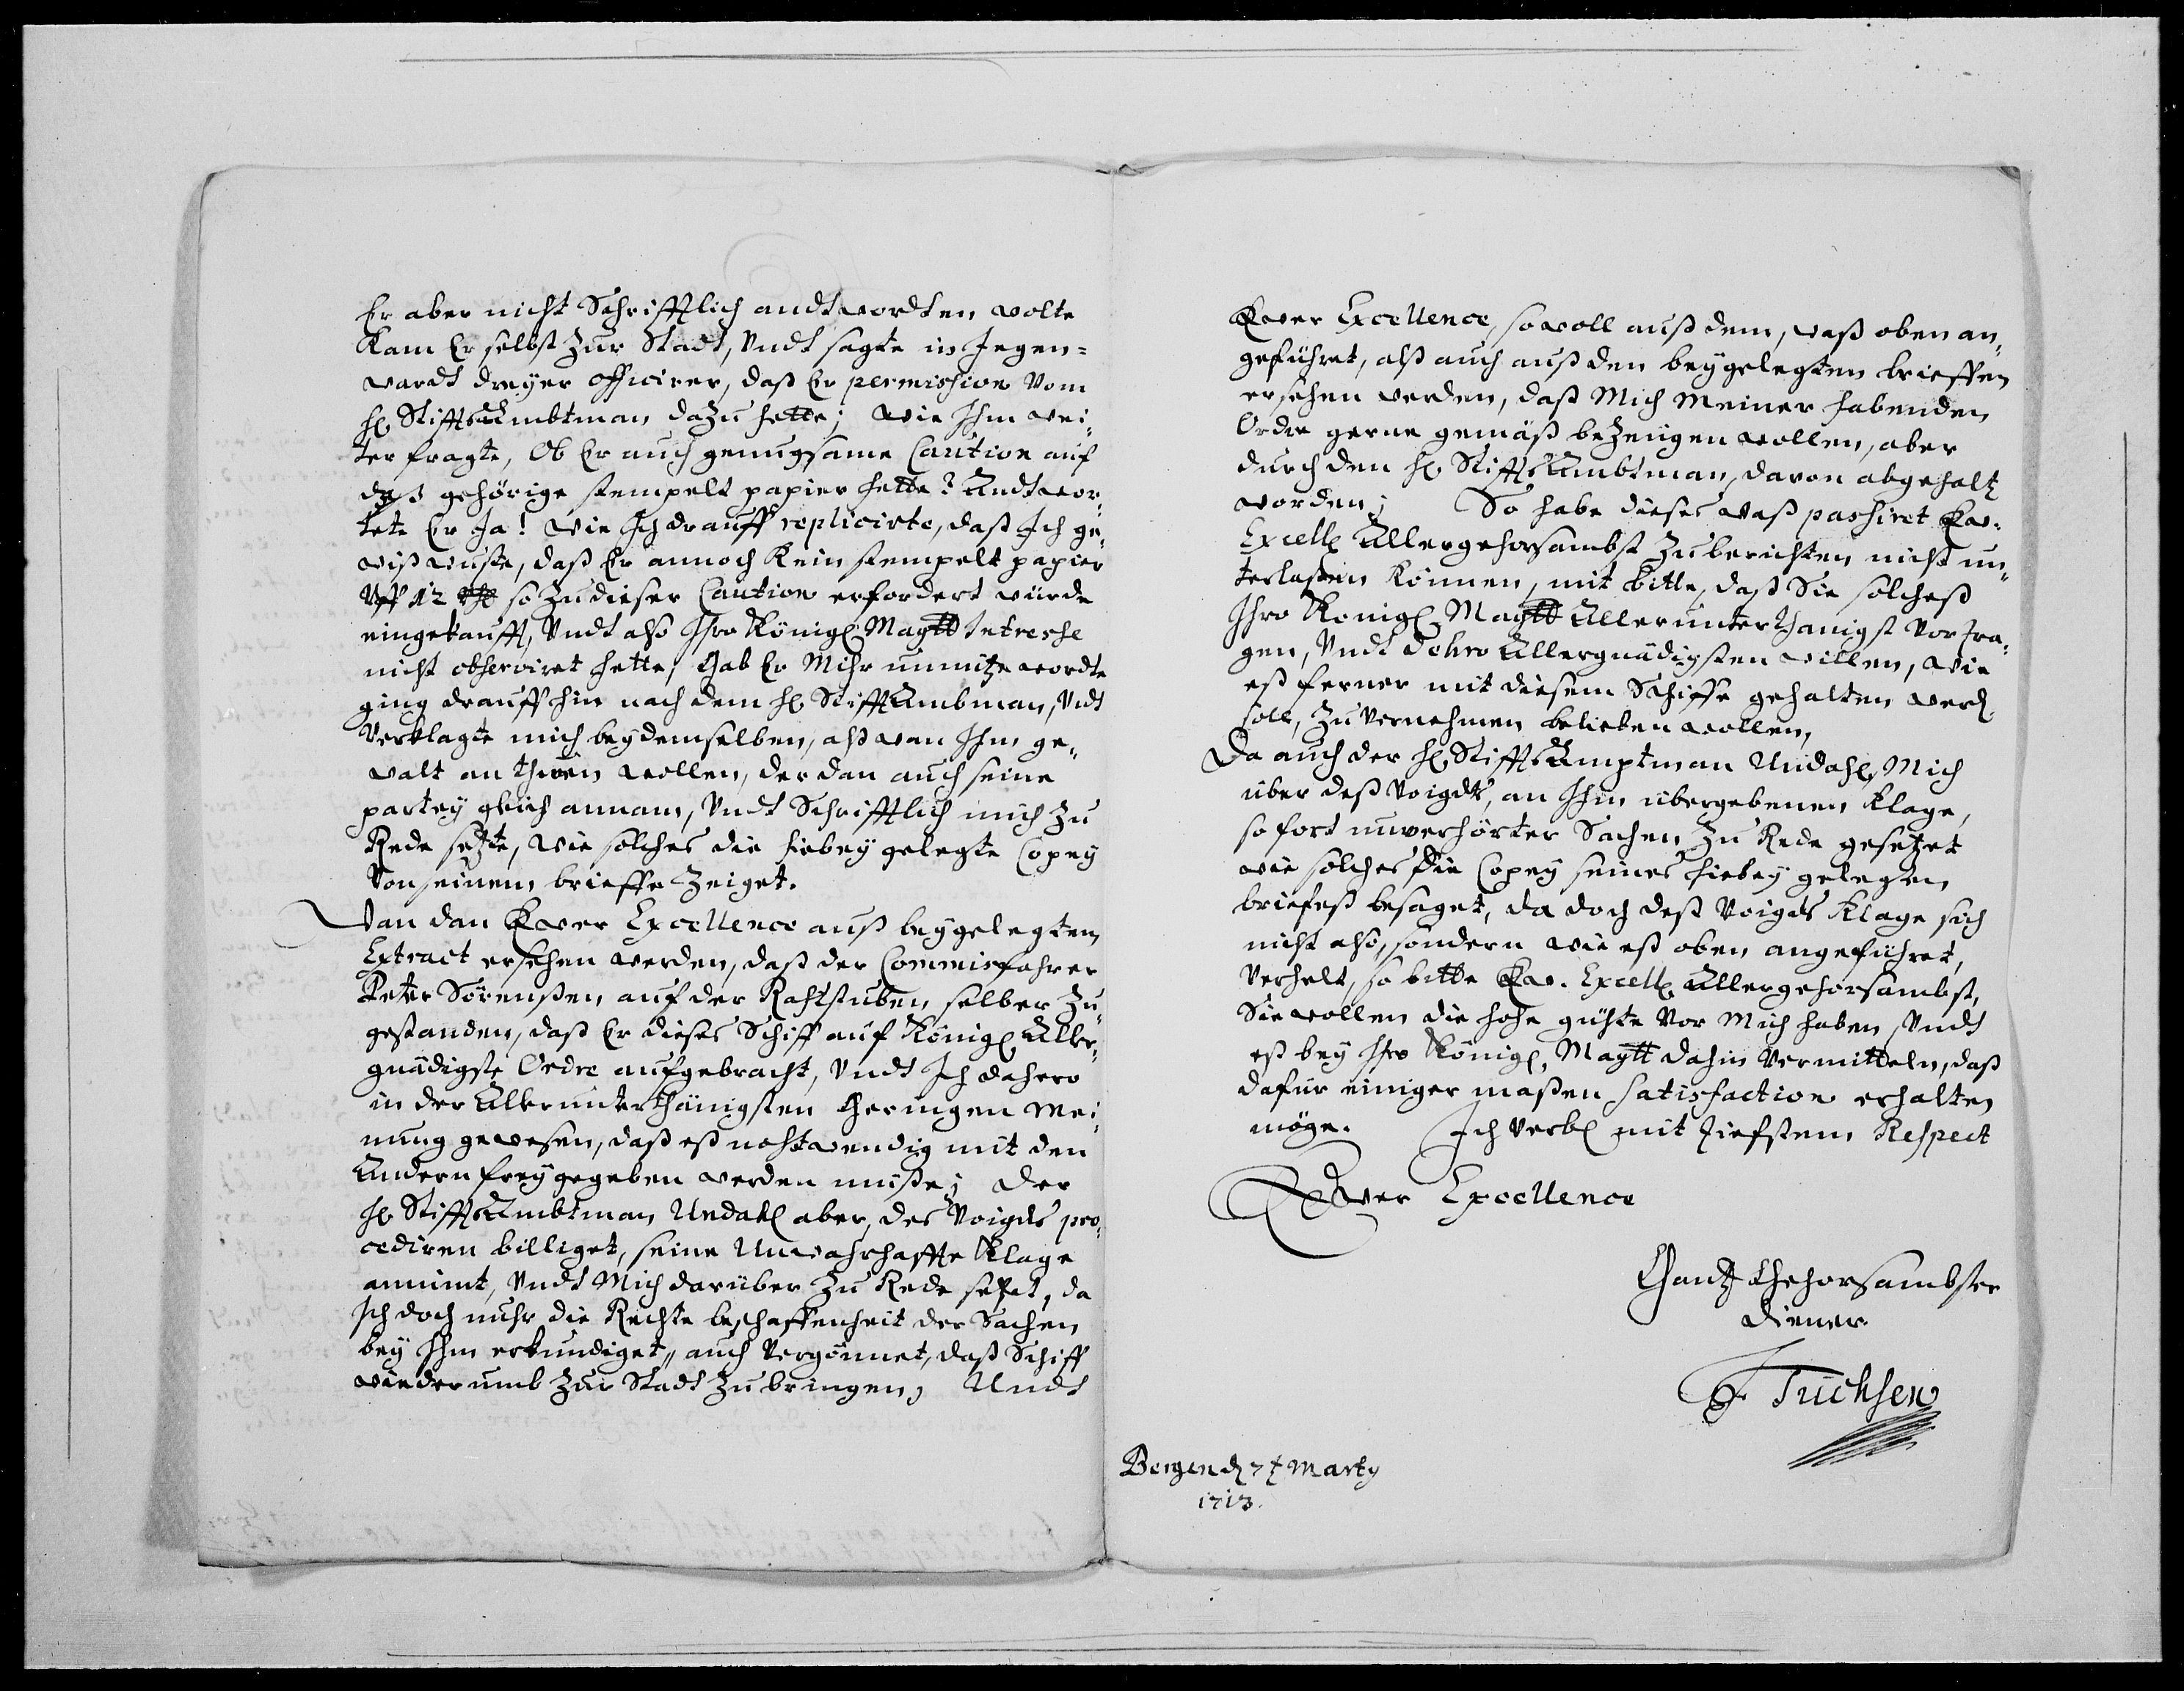 Er aber nicht Schrifftlich andtwordten wolte
Kam Er selbst Zur Stadt, Undt sagte in Jegen=
wardt dreyer officirer, daß Er permishion Vom
H. StifftsAmbtman daZu hette; wie Ihm wei,
ter fragte, Ob Er auch genugsame Caution auf
daß gehörige stempelt papier hette? Andtwor,
tete Er Ja! wie Ich drauff replicirte, daß Ich ge,
wiß wuste, daß Er annoch Kein stempelt papier
Uff 12 so Zu dieser Caution erfordert würde
eingekaufft, Undt also Ihro Königl Maytt Intreshe
nicht observiret hette, Gab Er Mihr unnütze wordte
ging drauff hin nach dem H. StifftAmbman, Undt
Verklagte mich bey demselben, alß wan Ihm ge,
walt an thuen wollen, der dan auch seine
partey gleich annam, Undt Schrifftlich mich Zu
Rede setzte, wie solches die hiebey gelegte Copey
Von seinem brieffe Zeiget.
Wan dan Ewer Excellence auß beygelegten
Extract ersehen werden, daß der Commisfahrer
Peter Sörensßen auf der Rahtstuben selber Zu,
gestanden, daß Er dieses Schiff auf Königl Aller,
gnädigste Ordre aufgebracht, Undt Ich dahero
in der Allerunterthänigsten Geringen Mei,
nung gewesen, daß eß nohtwendig mit den
Andern frey gegeben werden müße; Der
H. StifftsAmbtman Undahl aber, des Voigds pro,
cediren billiget, seine Unwahrhaffte Klage
annimt, Undt Mich darüber Zu Rede setzet, da
Ich doch nuhr die Rechte beschaffenheit der Sachen
bey Ihm erkundiget, auch Vergönnet, daß Schiff
wiederumb Zur Stadt Zu bringen, Undt
Ewer Excellence, sowoll auß dem, waß oben an,
geführet, alß auch auß den beygelegten brieffen
ersehen werden, daß Mich Meiner habenden
Ordre gerne gemäß beZeugen wollen, aber
durch den H. StifftsAmbtman, davon abgehalt
worden; So habe dieses waß pashiret Ew.
Excell Allergehorsambst Zu berichten nicht un,
terlaßen können, mit bitte, daß Sie solcheß
Ihro Königl Maytt Allerunterthänigst Vortra,
gen, Undt Dehro Allergnädigsten willen, wie
eß ferner mit diesem Schiffe gehalten werd
soll, Zu Vernehmen belieben wollen,
Da auch der H. StifftsAmptman Undahl, Mich
über deß Voigds, an Ihm übergebenen Klage,
so fort unverhörter Sachen Zu Rede gesetzet
wie solches die Copey seines hiebey gelegten
briefeß besaget, da doch deß Voigds Klage sich
nicht also, sondern wie eß oben angeführet,
Verhelt, so bitte Ew. Excell Allergehorsambst,
Sie wollen die hohe gühte Vor Mich haben, Undt
eß bey Ihro Königl. Maytt dahin Vermitteln, daß
dafür einiger maßen satisfaction erhalten
möge. Ich Verbl mit tiefstem Respect
Ewer Excellence
Gantz Gehorsambster
Diener
Tuchsen
Bergen d 7 Marty
1713.